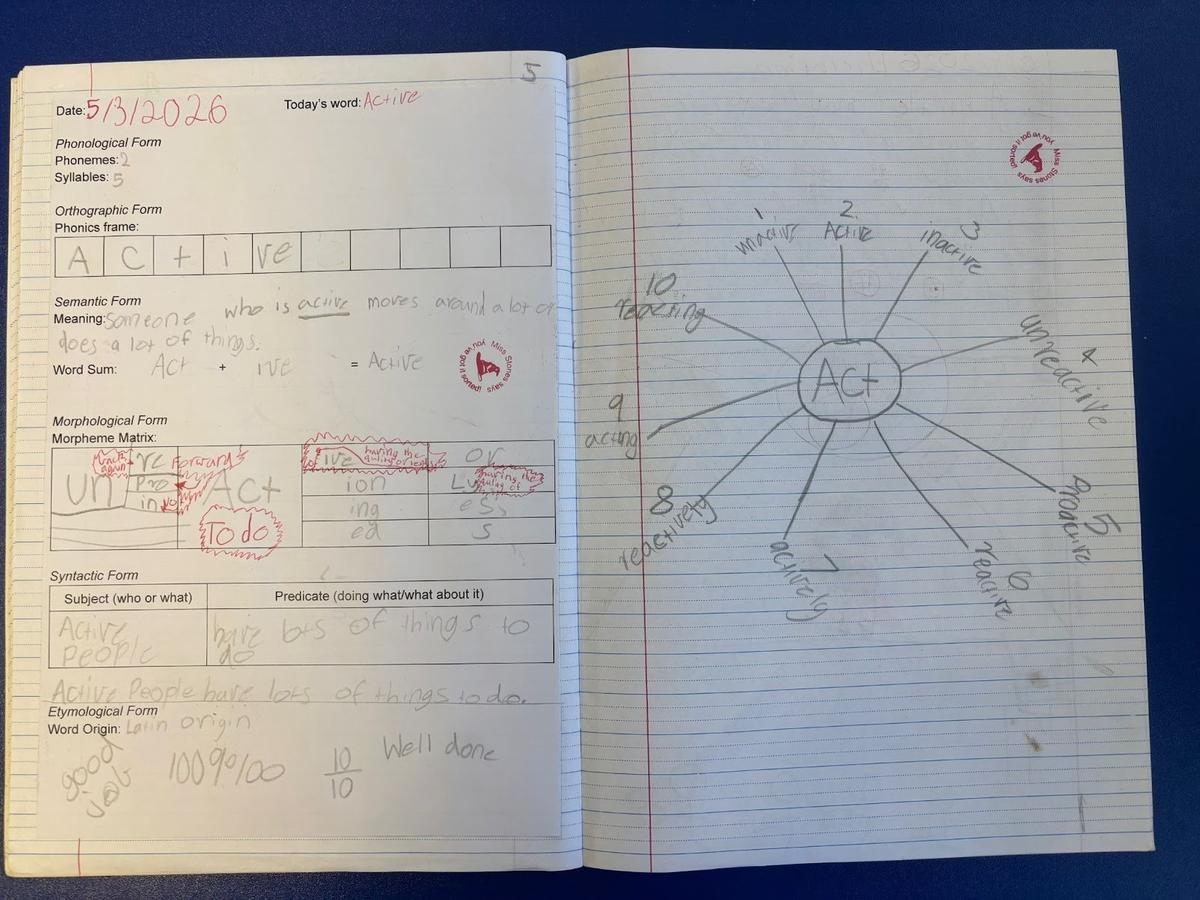 5
Date: 5/3/2026 Today's word: Active
Phonological Form
Phonemes: 2
Syllables: 5
Orthographic Form
Phonics frame:
A C t i ve
Semantic Form
Meaning: Someone who is active moves around a lot or
does a lot of things.
Word Sum: Act + ive = Active
Miss Stones says you've got it sorted!
Morphological Form
Morpheme Matrix:
back again re Forward ive having the or
un Pro Act ion Ly having the quality of
in no To do ing es
ed s
Syntactic Form
Subject (who or what) Predicate (doing what/what about it)
Active have lots of things to
People do
Active People have lots of things to do.
Etymological Form
Word Origin: Latin origin
good job 100%100 10/10 Well done
Miss Stones says you've got it sorted!
Act
1 unactive
2 Active
3 inactive
4 unreactive
5 Proactive
6 reactive
7 actively
8 reactively
9 acting
10 reacting